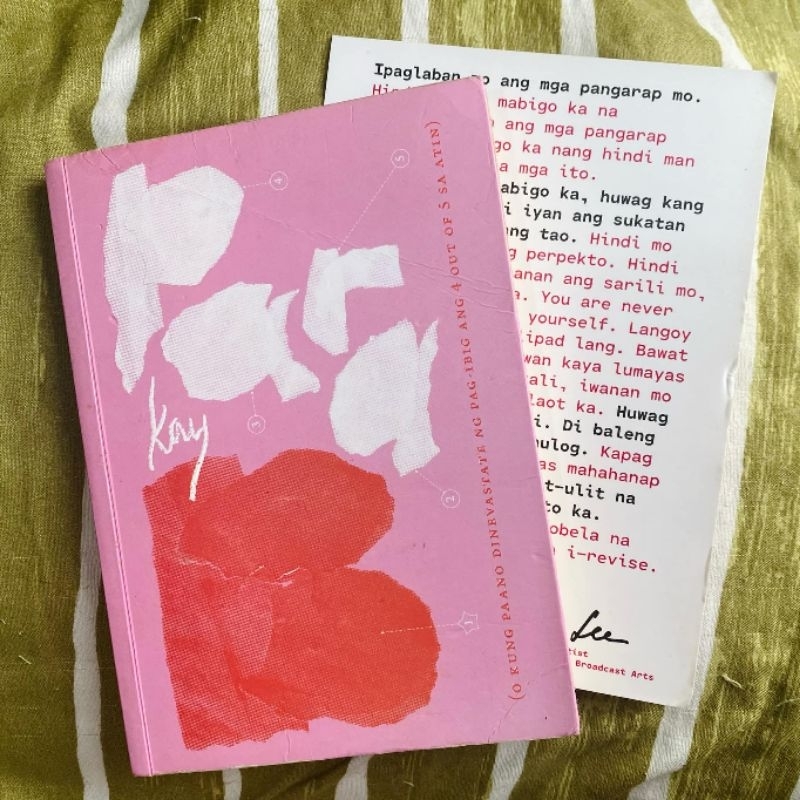 Para
kay
B
4
5
3
2
1
(O KUNG PAANO DINEVASTATE NG PAG-IBIG ANG 4 OUT OF 5 SA ATIN)
Ipaglaban mo ang mga pangarap mo.
mabigo ka na
ang mga pangarap
ka nang hindi man
mga ito.
ka, huwag kang
iyan ang sukatan
ang tao. Hindi mo
perpekto. Hindi
ang sarili mo,
You are never
yourself. Langoy
lang. Bawat
kaya lumayas
iwanan mo
ka. Huwag
Di baleng
Kapag
mahahanap
na
ka.
na
i-revise.
Lee
Broadcast Arts